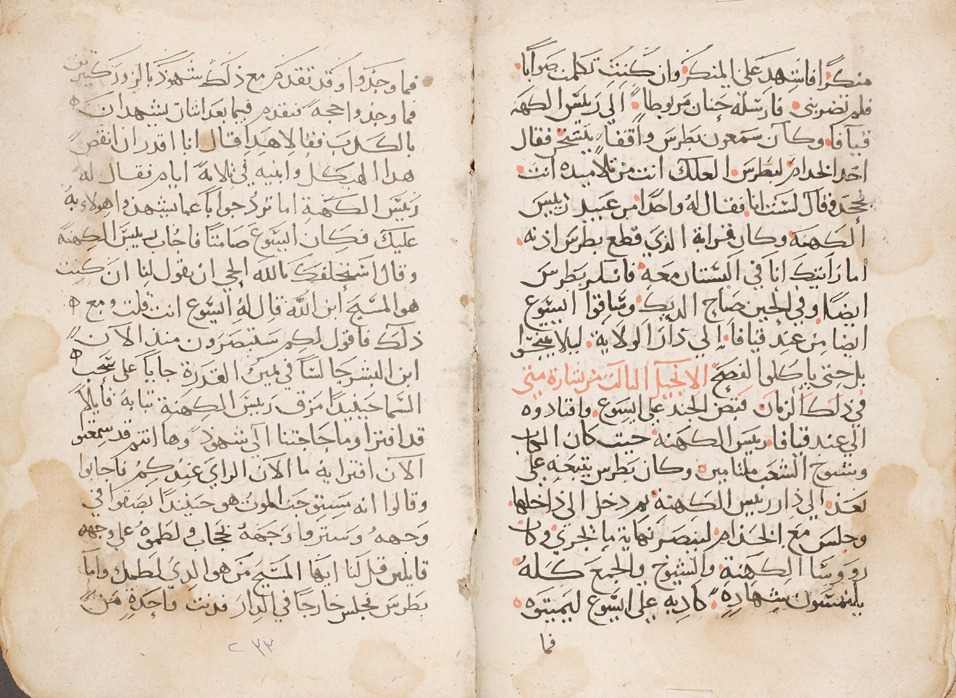 منكرًا فاشهد علي المنكر وان كنت تكلمت صوابا
فلم تضربني فارسله حنان مربوطا الي رييس الكهه
قيافا وكان سمعون بطرس واقفا يستخر فقال
احد الخدام لبطرس العلك انت من تلاميده انت
فجحد وقال لست انا فقال له واحدا من عبيد رييس
الكهنة وكان قرابة الذي قطع بطرس اذنه
اما رايتك انا في البستان معه فانكر بطرس
ايضا وفي الحين صاح الديك وساقوا اليسوع
ايضا من عند قيافا الي دار الولاية ليلا يتنجسوا
بل حتي ياكلوا الفصح الانجيل الثالث من بشارة متي
في ذلك الزمان قبض الجند علي اليسوع واقتادوه
الي عند قيافا رييس الكهنة حيث كان الكهاب
وشيوخ الشعب ملتامين وكان بطرس يتبعه علي
بعد الي دار رييس الكهنة ثم دخل الي داخلها
وجلس مع الخدام لينصر نهاية ما يجري وكان
رووسا الكهنة والشيوخ والجمع كله
يلتمسون شهادة كاذبه علي اليسوع ليميتوه
فما
فما وجدوا وقد تقدم مع ذلك شهود بالزور كثيرين
فما وجدوا حجة فتقدم فيما بعد اثنان يشهدان
بالكدب فقالا هدا قال انا اقدر ان انقض
هدا الهيكل وابنيه في ثلاثة ايام فقال له
رييس الكهنة اما ترد جوابا عما شهدوا هولاء به
عليك فكان اليسوع صامتا فاجاب رييس الكهنة
وقال استحلفك بالله الحي ان تقول لنا ان كنت
هو المسيح ابن الله قال له اليسوع انت قلت ومع
ذلك فاقول لكم ستبصرون مند الان
ابن البشر جالسا في ميمن القدرة جايا علي سحب
السما حينيدا مزق رييس الكهنة ثيابه قايلا
قد افترا وما حاجتنا الي شهود وها انتم قد سمعتم
الان افترايه ما الان الراي عندكم فاجابوا
وقالوا انه مستوجب الموت هو حينيدا بصقوا في
وجهه وستروا وجهه بحجاب ولطموه علي وجهه
قايلين قل لنا ايها المسيح من هو الذي لطمك واما
بطرس فجلس خارجا في الدار فدنت واحدة من
٢٣٣